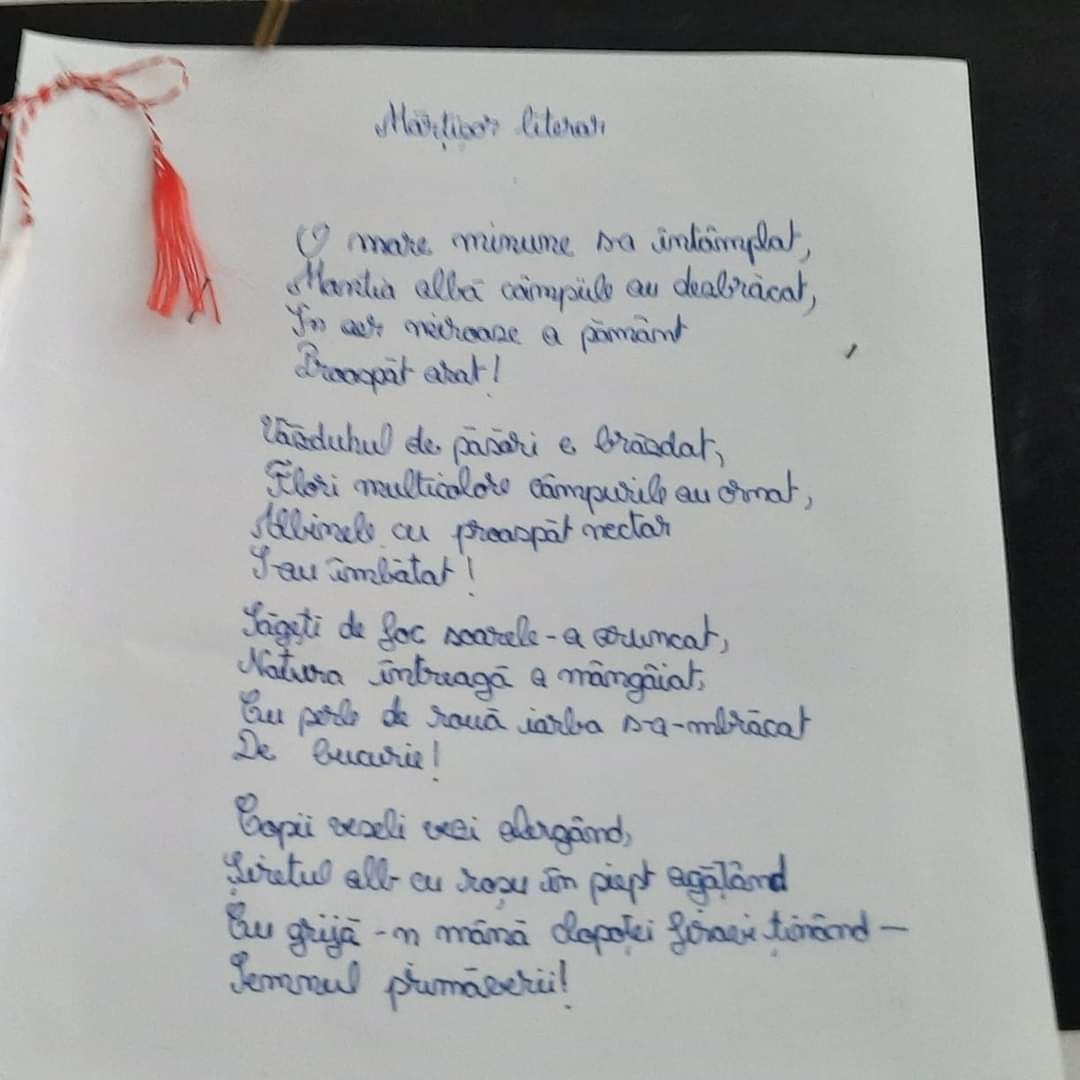 Mărțișor literar
O mare minune s-a întâmplat,
Mantia albă câmpiile au dezbrăcat,
În aer miroase a pământ
Proaspăt arat!
Văzduhul de păsări e brăzdat,
Flori multicolore câmpurile au ornat,
Albinele cu proaspăt nectar
S-au îmbătat!
Săgeți de foc soarele-a aruncat,
Natura întreagă a mângâiat,
Cu perle de rouă iarba s-a-mbrăcat
De bucurie!
Copii veseli vezi alergând,
Șiretul alb cu roșu în piept agățând
Cu grijă-n mână clopoței firavi ținând –
Semnul primăverii!